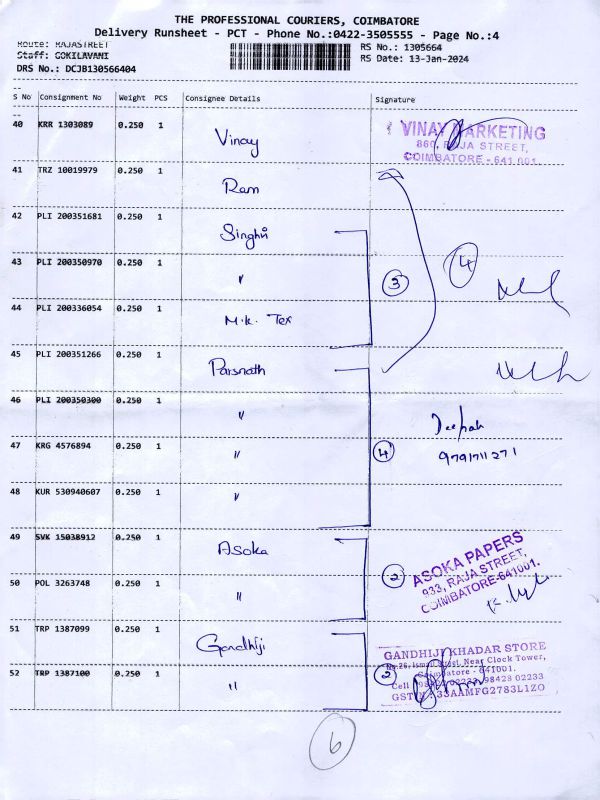 THE PROFESSIONAL COURIERS, COIMBATORE
Delivery Runsheet - PCT - Phone No.:0422-3505555 - Page No.:4
Route: RAJASTREET
Staff: GOKILAVANI
DRS No.: DCJB130566404
RS No.: 1305664
RS Date: 13-Jan-2024
S No Consignment No Weight PCS Consignee Details Signature
40 KRR 1303089 0.250 1 Vinay
VINAY MARKETING
860, RAJA STREET,
COIMBATORE - 641 001.
41 TRZ 10019979 0.250 1 Ram
42 PLI 200351681 0.250 1 Singhvi
43 PLI 200350970 0.250 1 "
3
4
44 PLI 200336054 0.250 1 M.K. Tex
45 PLI 200351266 0.250 1 Parsnath
46 PLI 200350300 0.250 1 "
Deepak
47 KRG 4576894 0.250 1 "
4
9791711271
48 KUR 530940607 0.250 1 "
49 SVK 15038912 0.250 1 Asoka
2
ASOKA PAPERS
933, RAJA STREET,
COIMBATORE-641001.
50 POL 3263748 0.250 1 "
51 TRP 1387099 0.250 1 Gandhiji
GANDHIJI KHADAR STORE
No.26, Ismail Street, Near Clock Tower,
Coimbatore - 641001.
52 TRP 1387100 0.250 1 "
2
Cell 98428 02233
GSTN : 33AAMFG2783L1ZO
6